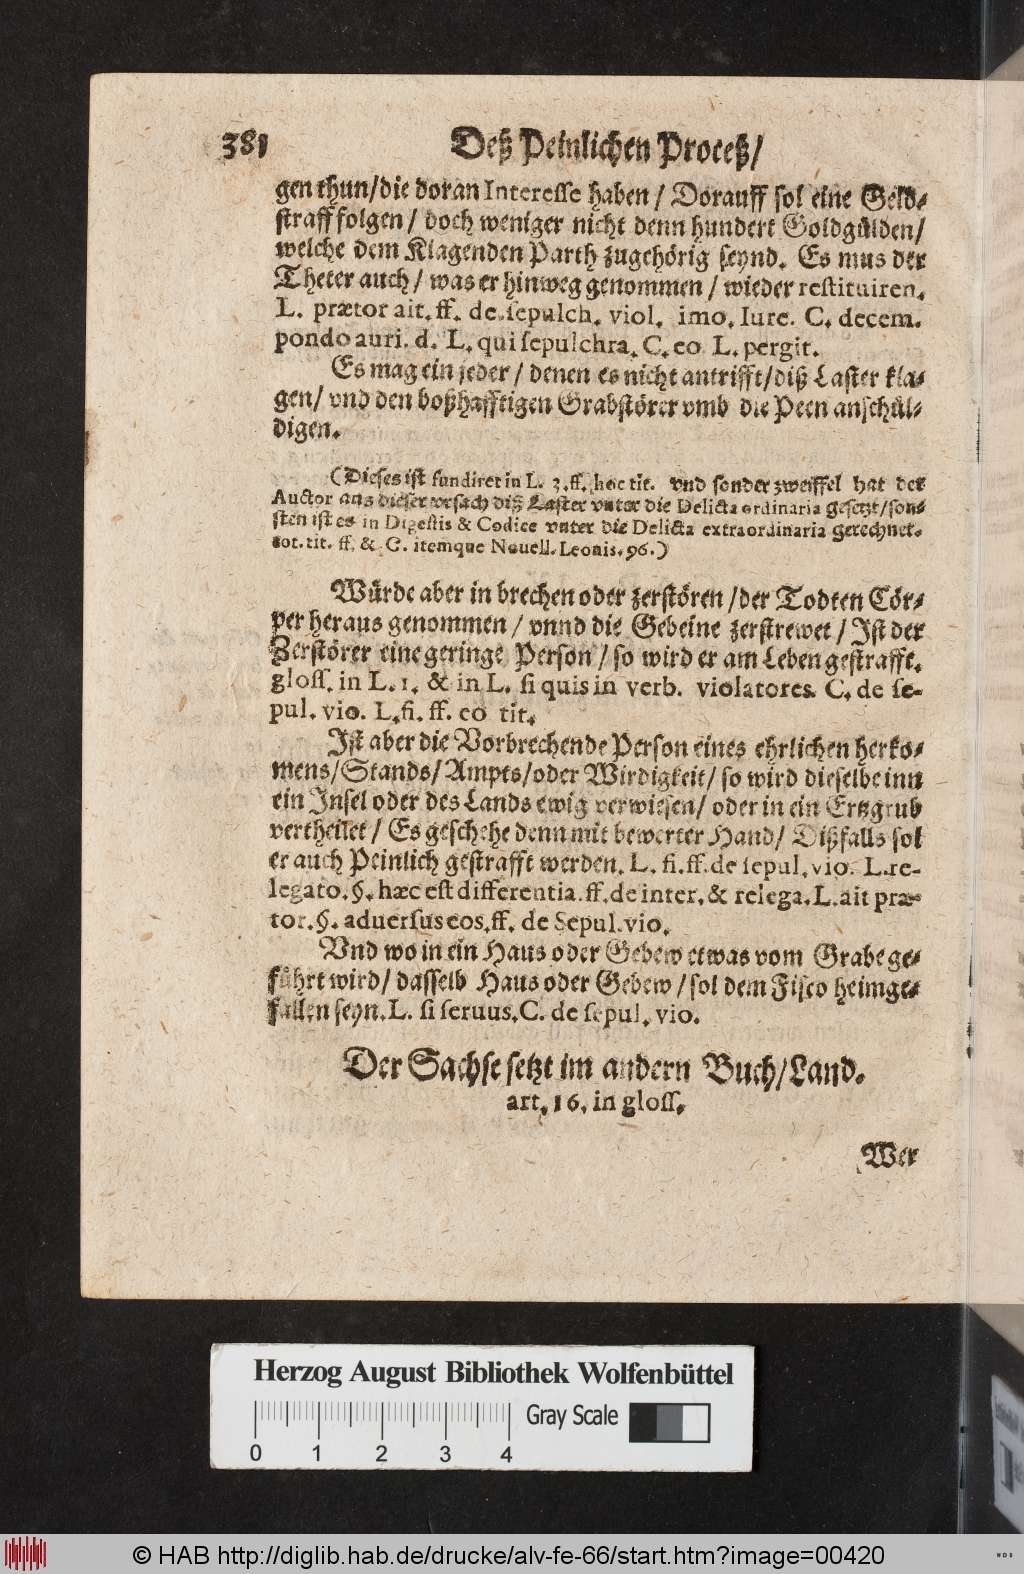 381 Deß Peinlichen Proceß/
gen thun/die doran Interesse haben / Dorauff sol eine Geld-
straff folgen / doch weniger nicht denn hundert Goldgülden/
welche dem Klagenden Parth zugehörig seynd. Es mus der
Theter auch / was er hinweg genommen / wieder restituiren.
L. prætor ait. ff. de sepulch. viol. imo. Iure. C. decem.
pondo auri. d. L. qui sepulchra. C. eo L. pergit.
Es mag ein jeder / denen es nicht antrifft/diß Laster kla-
gen/ vnd den boßhafftigen Grabstörer vmb die Peen anschül-
digen.
(Dieses ist fundiret in L. 3. ff. hoc tit. vnd sonder zweiffel hat der
Auctor aus dieser vrsach diß Laster vnter die Delicta ordinaria gesetzt/son-
sten ist es in Digestis & Codice vnter die Delicta extraordinaria gerechnet.
tot. tit. ff. & C. itemque Nouell. Leonis. 96.)
Würde aber in brechen oder zerstören /der Todten Cör-
per heraus genommen / vnnd die Gebeine zerstrewet / Ist der
Zerstörer eine geringe Person / so wird er am Leben gestrafft.
gloss. in L. 1. & in L. si quis in verb. violatores. C. de se-
pul. vio. L. fi. ff. eo tit.
Ist aber die Vorbrechende Person eines ehrlichen herko-
mens/Stands/Ampts/oder Wirdigkeit/ so wird dieselbe inn
ein Insel oder des Lands ewig verwiesen/ oder in ein Ertzgrub
vertheilet / Es geschehe denn mit bewerter Hand/ Dißfalls sol
er auch Peinlich gestrafft werden. L. fi. ff. de sepul. vio. L. re-
legato. §. hæc est differentia. ff. de inter. & relega. L. ait præ-
tor. §. aduersus eos. ff. de Sepul. vio.
Vnd wo in ein Haus oder Gebew etwas vom Grabe ge-
führt wird/ dasselb Haus oder Gebew / sol dem Fisco heimge-
fallen seyn. L. si seruus. C. de sepul. vio.
Der Sachse setzt im andern Buch/Land.
art. 16. in gloss.
Wer
Herzog August Bibliothek Wolfenbüttel
Gray Scale
0 1 2 3 4
© HAB http://diglib.hab.de/drucke/alv-fe-66/start.htm?image=00420